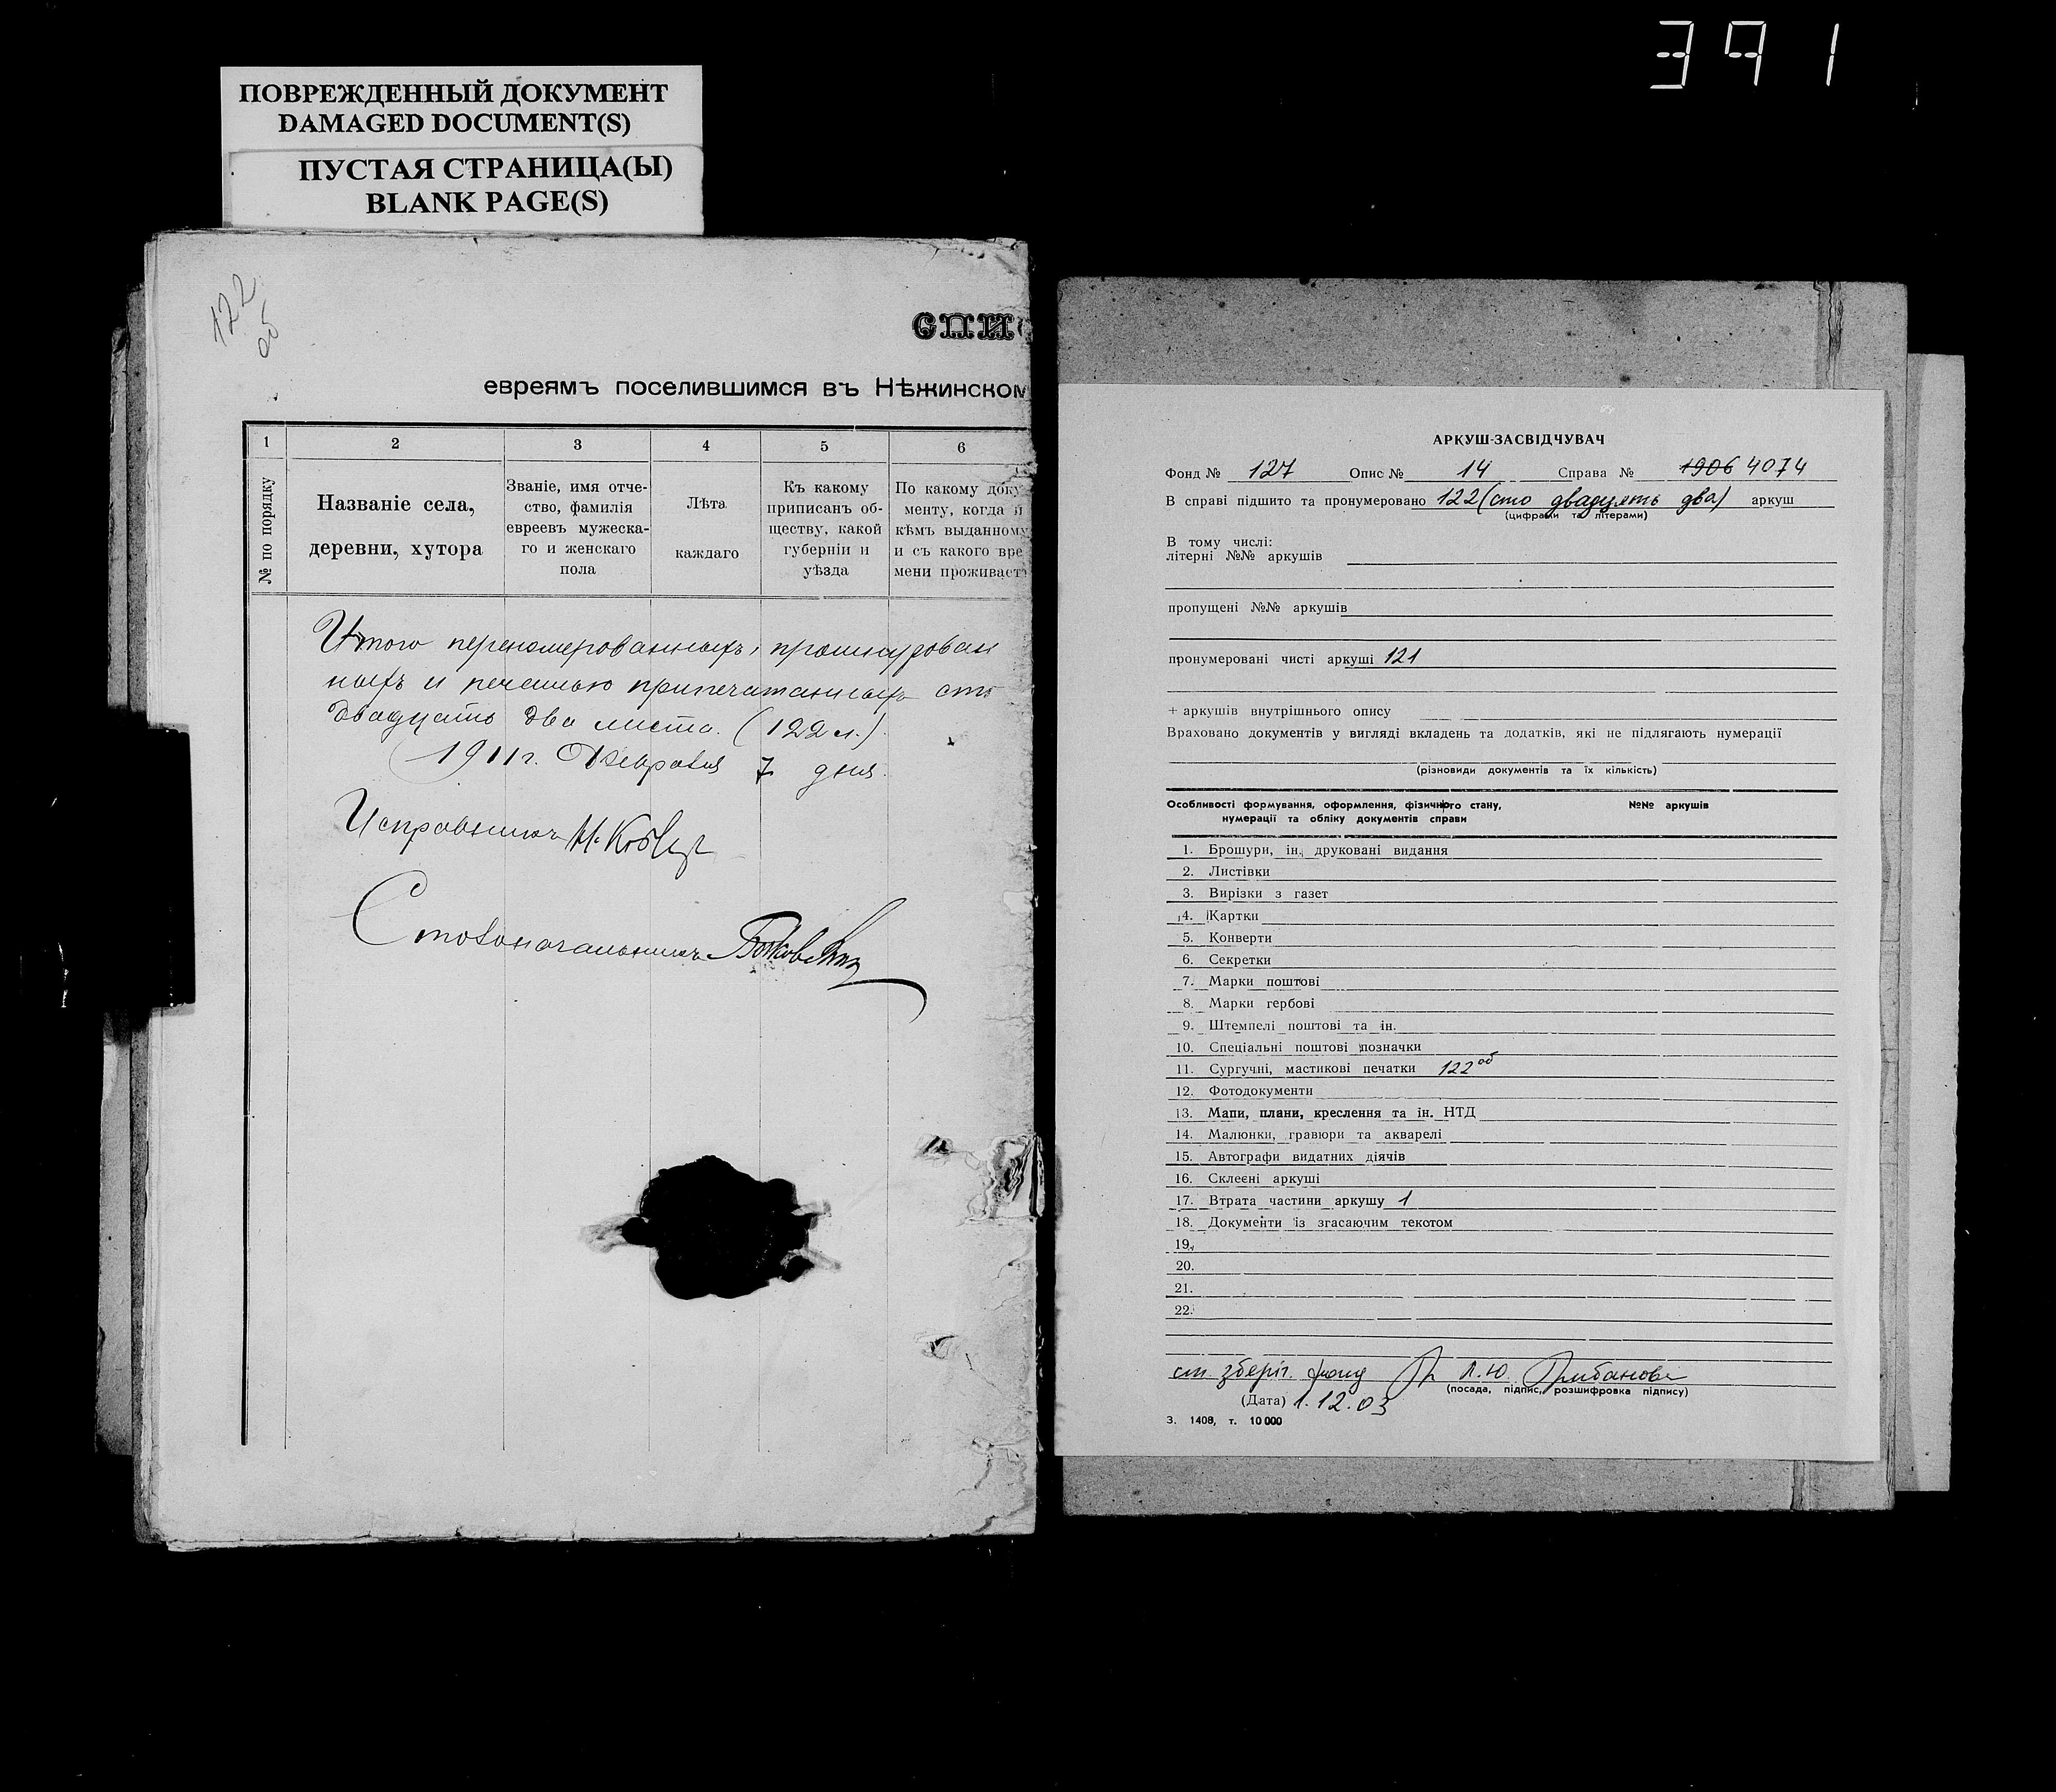 391
ПОВРЕЖДЕННЫЙ ДОКУМЕНТ
DAMAGED DOCUMENT(S)
ПУСТАЯ СТРАНИЦА(Ы)
BLANK PAGE(S)
122
об
СПИ
евреямъ поселившимся въ Нѣжинском
1 2 3 4 5 6
№ по порядку
Названіе села,
деревни, хутора
Званіе, имя отче-
ство, фамилія
евреевъ мужеска-
го и женскаго
пола
Лѣта
каждаго
Къ какому
приписанъ об-
ществу, какой
губерніи и
уѣзда
По какому доку-
менту, когда и
кѣмъ выданному
и съ какого вре-
мени проживаетъ
Итого перенумерованныхъ, прошнурован
ныхъ и печатью припечатанныхъ сто
двадцать два листа. (122 л.)
1911 г. Февраля 7 дня.
Исправникъ
Столоначальникъ
АРКУШ-ЗАСВІДЧУВАЧ
Фонд № 127 Опис № 14 Справа № 1906 4074
В справі підшито та пронумеровано 122 (сто двадцять два) аркуш
(цифрами та літерами)
В тому числі:
літерні №№ аркушів
пропущені №№ аркушів
пронумеровані чисті аркуші 121
+ аркушів внутрішнього опису
Враховано документів у вигляді вкладень та додатків, які не підлягають нумерації
(різновиди документів та їх кількість)
Особливості формування, оформлення, фізичного стану, №№ аркушів
нумерації та обліку документів справи
1. Брошури, ін. друковані видання
2. Листівки
3. Вирізки з газет
4. Картки
5. Конверти
6. Секретки
7. Марки поштові
8. Марки гербові
9. Штемпелі поштові та ін.
10. Спеціальні поштові позначки
11. Сургучні, мастикові печатки 122 об
12. Фотодокументи
13. Мапи, плани, креслення та ін. НТД
14. Малюнки, гравюри та акварелі
15. Автографи видатних діячів
16. Склеєні аркуші
17. Втрата частини аркушу 1
18. Документи із згасаючим текстом
19.
20.
21.
22.
ст. зберіг. фонд Л.Ю.
(посада, підпис, розшифровка підпису)
(Дата) 1.12.03
З. 1408, т. 10 000